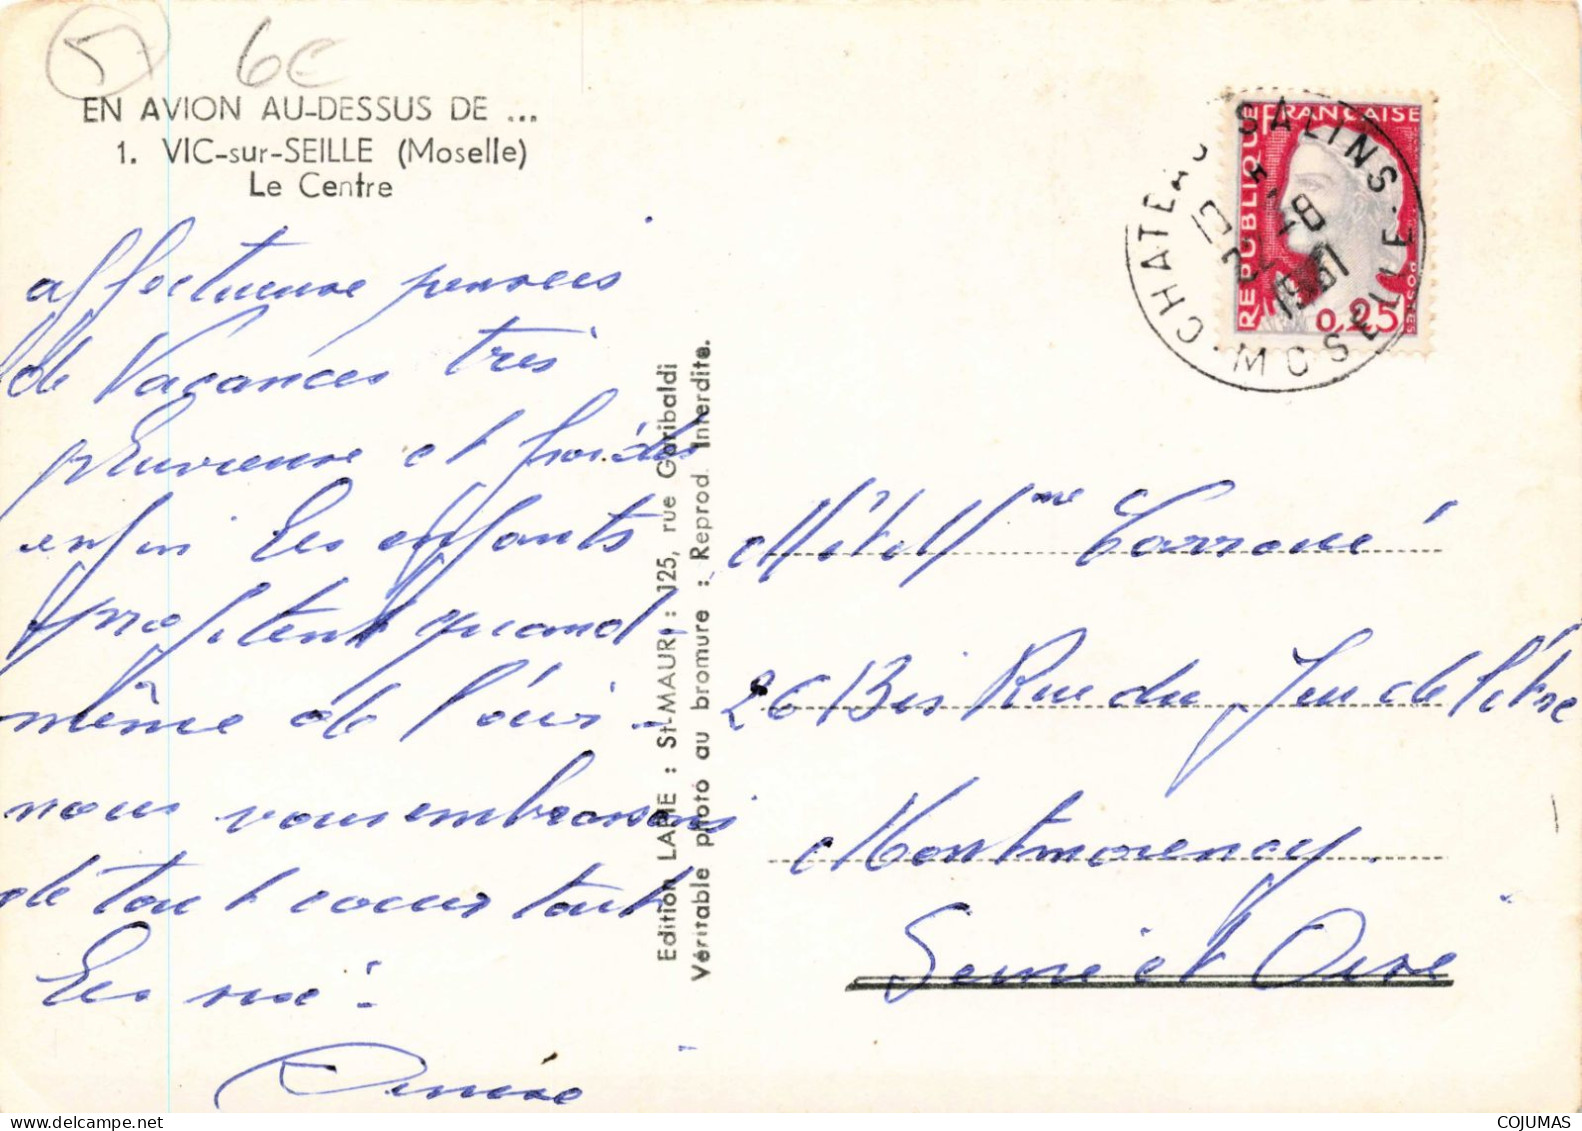 57 6€
EN AVION AU-DESSUS DE ...
1. VIC-sur-SEILLE (Moselle)
Le Centre
affectueuse pensees
de Vacances très
pluvieuse et froides
enfin les enfants
profitent quand
même de l'air -
nous vous embrassons
de tout coeur tout
Edition LAPIE : St-MAUR : 125, rue Garibaldi
Véritable photo au bromure : Reprod. Interdite.
REPUBLIQUE FRANÇAISE
POSTES
0,25
CHATEAU SALINS
MOSELLE
1961
M et Mme
26 Bis Rue du Jeu de l'
Montmorency.
Seine et Oise
COJUMAS